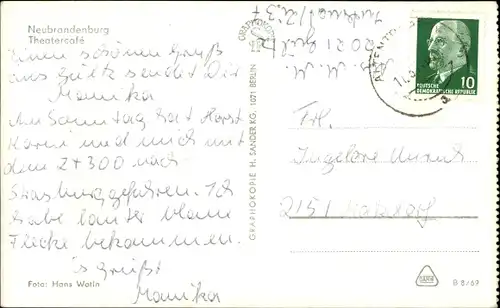 Neubrandenburg
Theatercafé
Einen schönen Gruß
aus Gültz sendet Dir
Marika
Am Sonntag hat Horst
Karin und mich mit
dem 2+300 nach
Strasburg gefahren. Ich
habe lauter blaue
Flecke bekommen.
Es grüßt
Marika
Foto: Hans Wotin
GRAPHOKOPIE H. SANDER KG, 1071 BERLIN
2021 Gültz
10
DEUTSCHE
DEMOKRATISCHE REPUBLIK
Frl.
Ingelore
2151
B 8/69